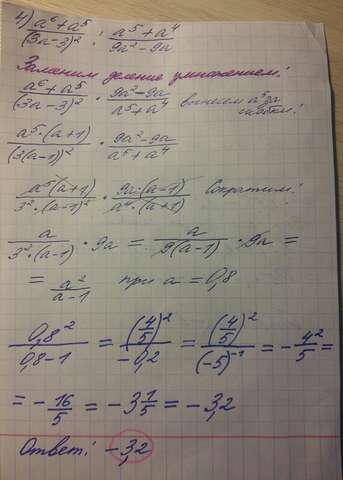 4) (a⁶+a⁵)/(3a-3)² : (a⁵+a⁴)/(9a²-9a)
Заменим деление умножением:
(a⁶+a⁵)/(3a-3)² · (9a²-9a)/(a⁵+a⁴) вынесем a⁵ за скобки!
(a⁵·(a+1))/(3(a-1))² · (9a²-9a)/(a⁵+a⁴)
(a⁵·(a+1))/(3²·(a-1)²) · (9a·(a-1))/(a⁴·(a+1)) Сократим!
a/(3²·(a-1)) · 9a = a/(9(a-1)) · 9a =
= a²/(a-1) при a = 0,8
0,8²/(0,8-1) = (4/5)²/(-0,2) = (4/5)²/(-5)⁻¹ = -4²/5 =
= -16/5 = -3 1/5 = -3,2
Ответ: -3,2